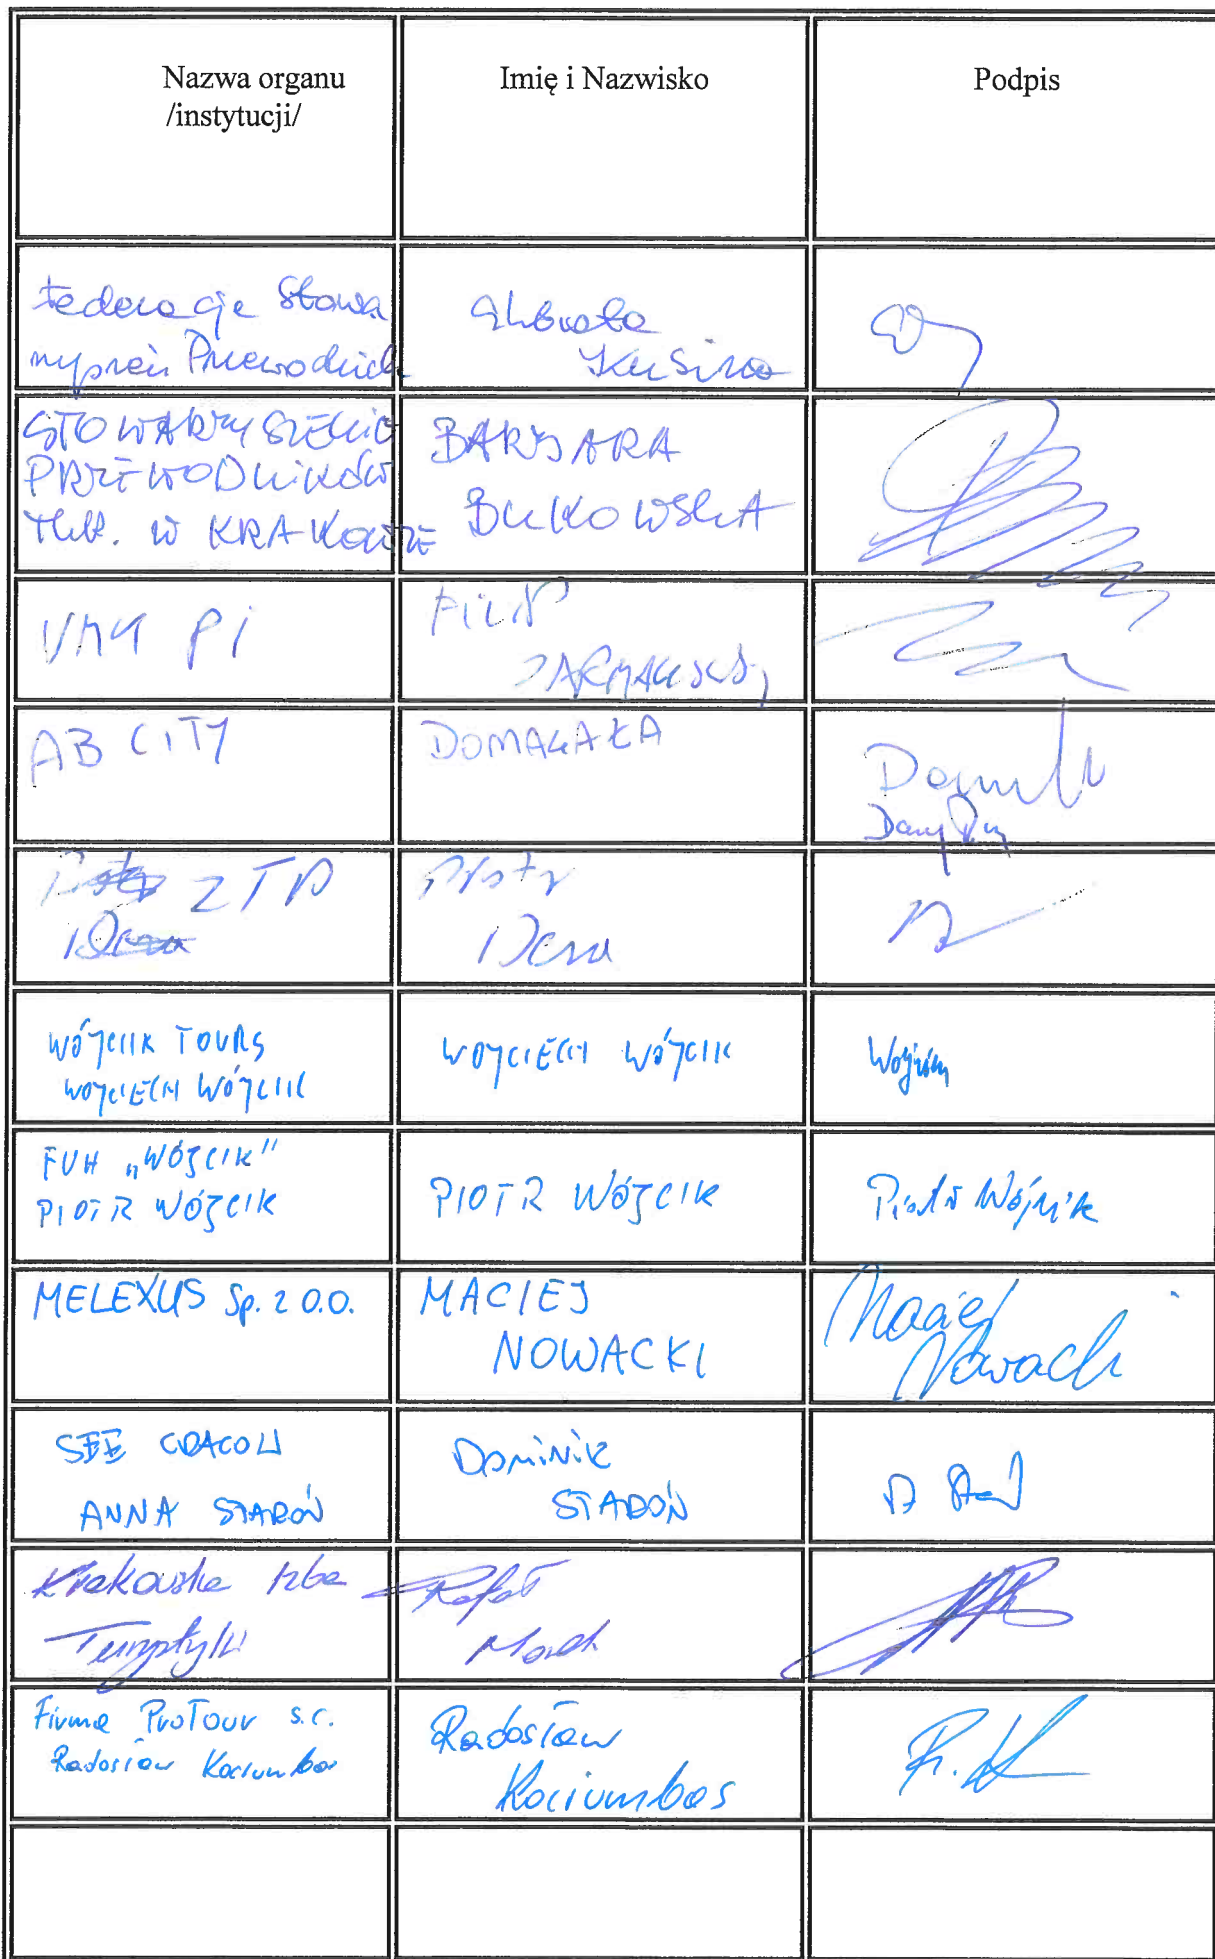 Nazwa organu
/instytucji/
Imię i Nazwisko
Podpis
Federacje Stowa
Kusina
STOWARZYSZENIE
PRZEWODNIKÓW
W KRAKOWIE
BARBARA
BUKOWSKA
PI
FILIP
AB CITY
DOMAGAŁA
ZTP
WÓJCIK TOURS
WOJCIECH WÓJCIK
WOJCIECH WÓJCIK
Wójcik
FUH „WÓJCIK"
PIOTR WÓJCIK
PIOTR WÓJCIK
Piotr Wójcik
MELEXUS Sp. z o.o.
MACIEJ
NOWACKI
Maciej
Nowacki
SEE CRACOW
ANNA STAROŃ
DOMINIK
STAROŃ
Krakowska Izba
Turystyki
Rafał
Marek
Firma ProTour s.c.
Radosław Kociumbas
Radosław
Kociumbas
R. K